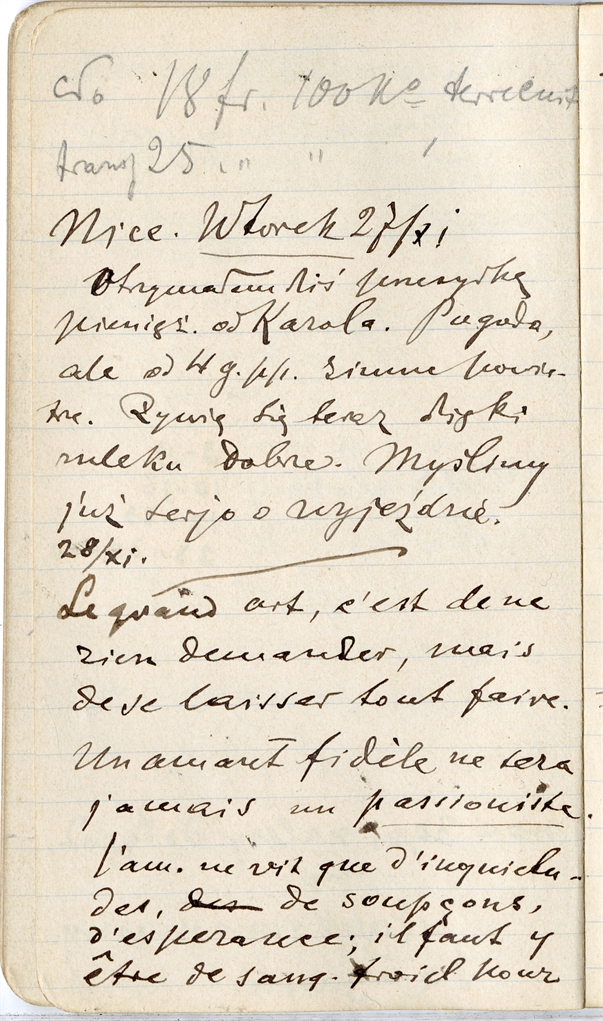 cło 18 fr. 100 Ko
transp 25 " " "
Nice. Wtorek 27/XI
Otrzymałem dziś przesyłkę
pienięż. od Karola. Pogoda,
ale od 4 g. pp. zimne powie-
trze. Żywię się teraz dzięki
mleku dobrze. Myślimy
już serjo o wyjeździe.
28/XI.
Le grand art, c'est de ne
rien demander, mais
de se laisser tout faire.
Un amant fidèle ne sera
jamais un passioniste.
l'am. ne vit que d'inquietu-
des, des de soupçons,
d'esperance; il faut y
être de sang-froid pour